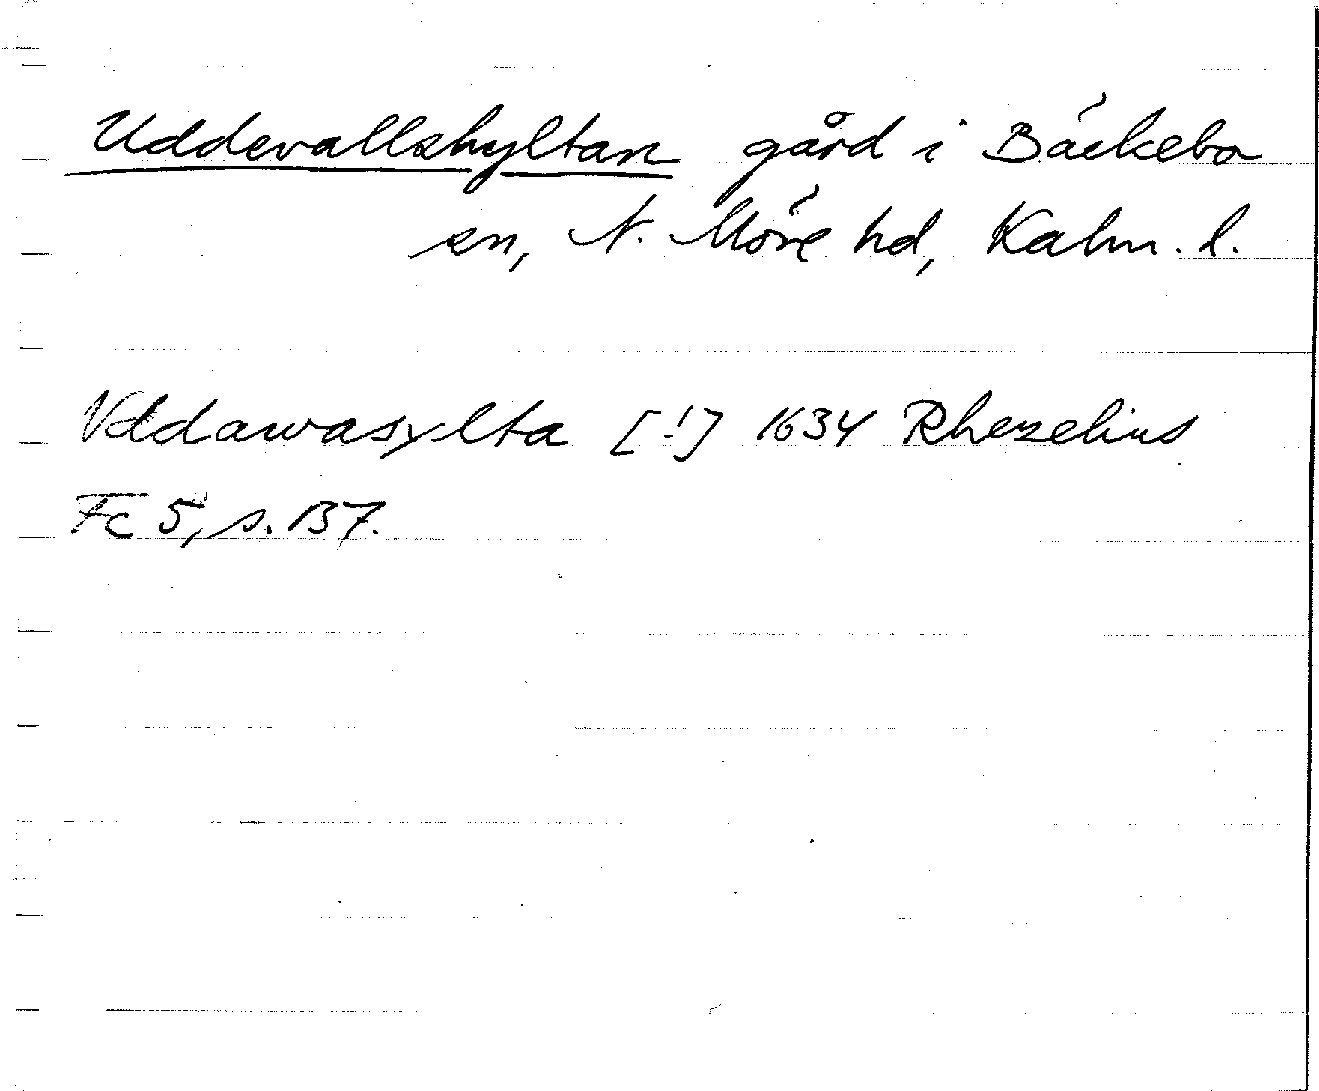 Uddevallshyltan gård i Bäckebo
sn, N. Möre hd, Kalm. l.
Vddawasylta [!] 1634 Rhezelius
Fc 5, s. 137.